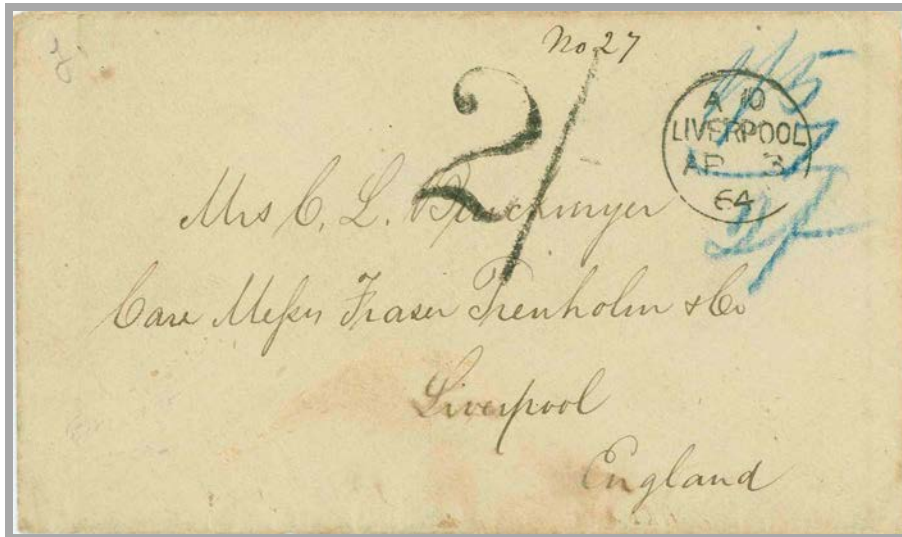 No 27
2/
A 10
LIVERPOOL
AP 3
64
Mrs C. L. Burckmyer
Care Messrs Fraser Trenholm & Co
Liverpool
England